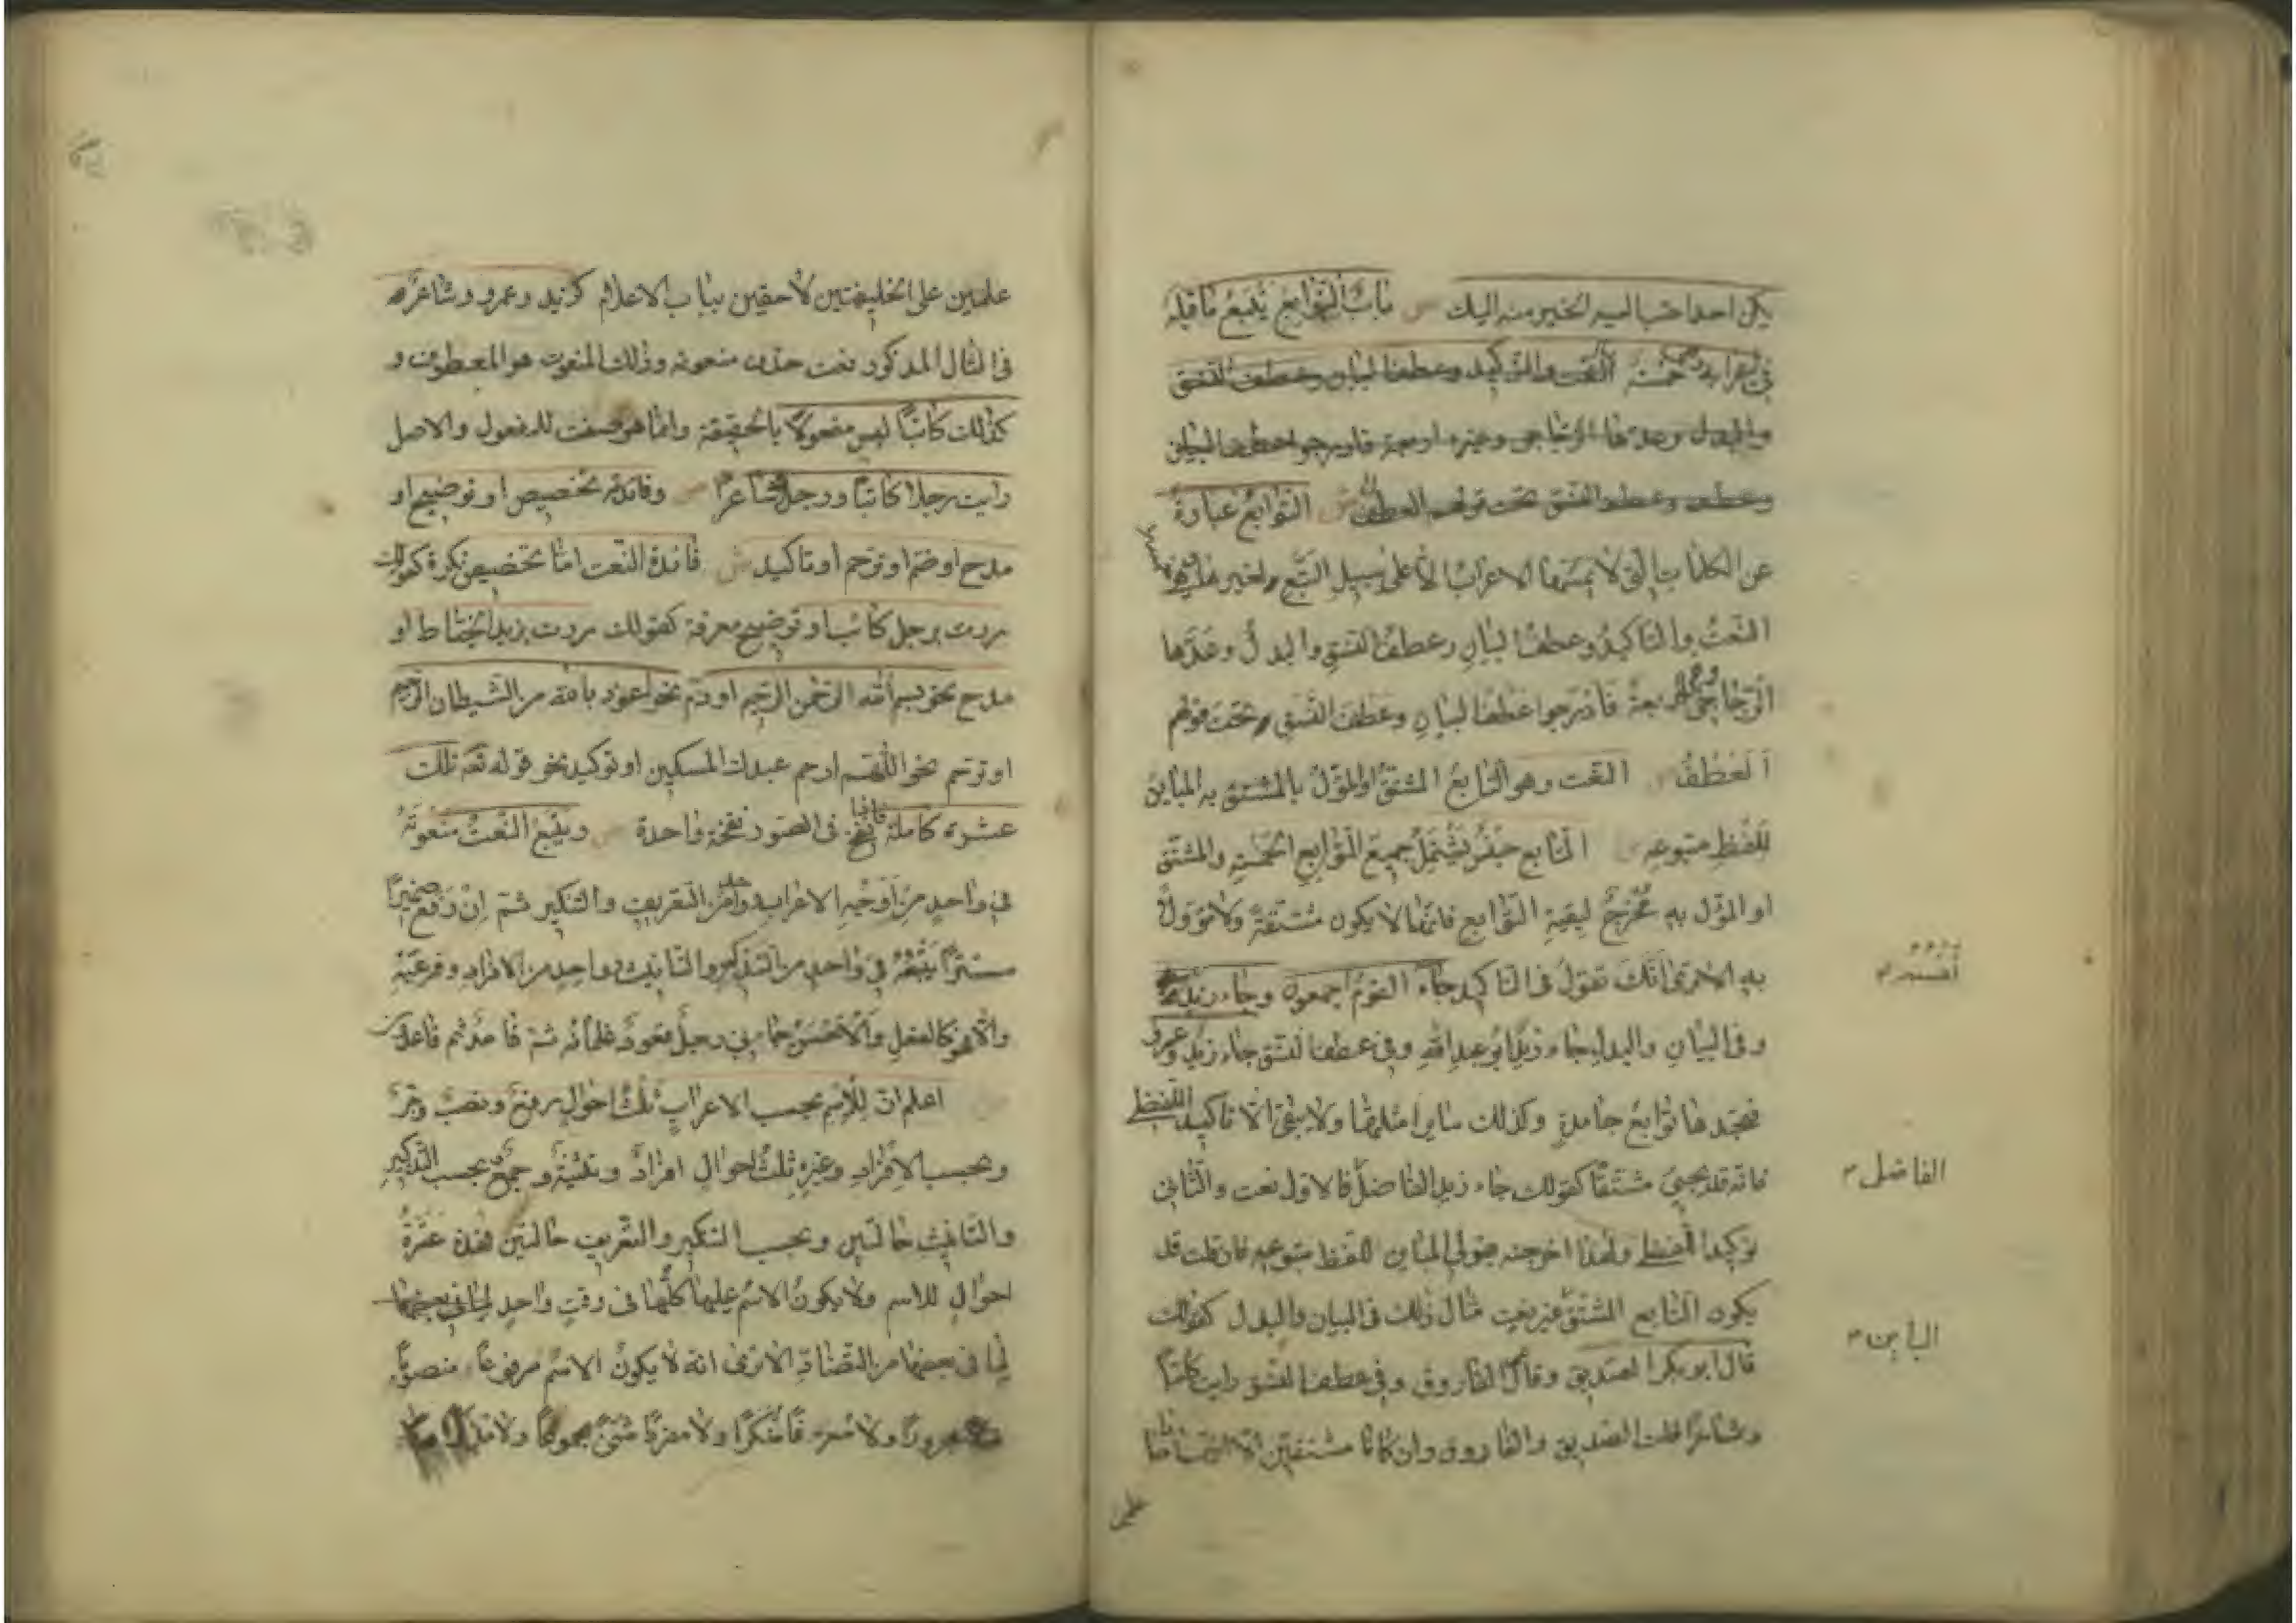 يكن احدا حبا اليه الخير منه اليك ص باب التوابع يتبع ما قبله
في اعرابه خمسة النعت والتوكيد وعطف البيان وعطف النسق
والبدل وعدها الزجاجي وغيره اربعة فادرجوا عطف البيان
وعطف النسق تحت قولهم العطف ش التوابع عبارة
عن الكلمات التي لا يمسها الاعراب الا على سبيل التبع لغيرها وهي خمسة
النعت والتاكيد وعطف البيان وعطف النسق والبدل وعدها
الزجاجي وغيره اربعة فادرجوا عطف البيان وعطف النسق تحت قولهم
العطف ص النعت وهو التابع المشتق او المؤل بالمشتق به المباين
للفظ متبوعه ش التابع جنس يشمل جميع التوابع الخمسة والمشتق
او المؤل به مخرج لبقية التوابع فانها لا يكون مشتقة ولا مؤولة
به الا ترى انك تقول في التاكيد جاء القوم اجمعون وجاء زيد
انفسهم
وفي البيان والبدل جاء زيد ابو عبد الله وفي عطف النسق جاء زيد وعمرو
فتجدها توابع جامدة وكذلك ساير امثلتها ولا يبقى الا تاكيد اللفظ
فانه قد يجيئ مشتقا كقولك جاء زيد الفاضل فالاول نعت والثاني
الفاضل
توكيد اللفظ ولهذا اخرجته بقولي المباين للفظ متبوعه فان قلت قد
يكون التابع المشتق غير نعت مثال ذلك في البيان والبدل كقولك
قال ابو بكر الصديق وقال الفاروق وفي عطف النسق رايت كاتبا
وشاعرا قلت الصديق والفاروق وان كانا مشتقين الا انهما صارا
علمين
علمين على الخليفتين لاحقين بباب الاعلام كزيد وعمرو وشاعرا
في المثال المذكور نعت حذف منعوته وذلك المنعوت هو المعطوف و
كذلك كاتبا ليس مفعولا بالحقيقة وانما هو صفت للمفعول والاصل
رايت رجلا كاتبا ورجلا شاعرا ص وفائدته تخصيص او توضيح او
مدح او ذم او ترحم او تاكيد ش فائدة النعت اما تخصيص نكرة كقولك
مررت برجل كاتب او توضيح معرفة كقولك مررت بزيد الخياط او
مدح نحو بسم الله الرحمن الرحيم او ذم نحو اعوذ بالله من الشيطان الرجيم
او ترحم نحو اللهم ارحم عبدك المسكين او توكيد نحو قوله تعه تلك
عشرة كاملة فاذا نفخ في الصور نفخة واحدة ص ويتبع النعت منعوته
في واحد من اوجه الاعراب ومن التعريف والتنكير ثم ان رفع ضميرا
مستترا يتبعه في واحد من التذكير والتانيث وواحد من الافراد وفرعيه
والا فهو كالفعل والاحسن جاءني رجل قعود غلمانه ثم قاعد ثم قاعدون
اعلم ان للاسم بحسب الاعراب ثلث احوال رفع ونصب وجر
وبحسب الافراد وغيره ثلث احوال افراد وتثنية وجمع بحسب التذكير
والتانيث حالتين وبحسب التنكير والتعريف حالتين فهذه عشرة
احوال للاسم ولا يكون الاسم عليها كلها في وقت واحد
لما في بعضها من التضاد الا ترى انه لا يكون الاسم مرفوعا منصوبا
مجرورا ولا معرفا منكرا ولا مفردا مثنى مجموعا ولا